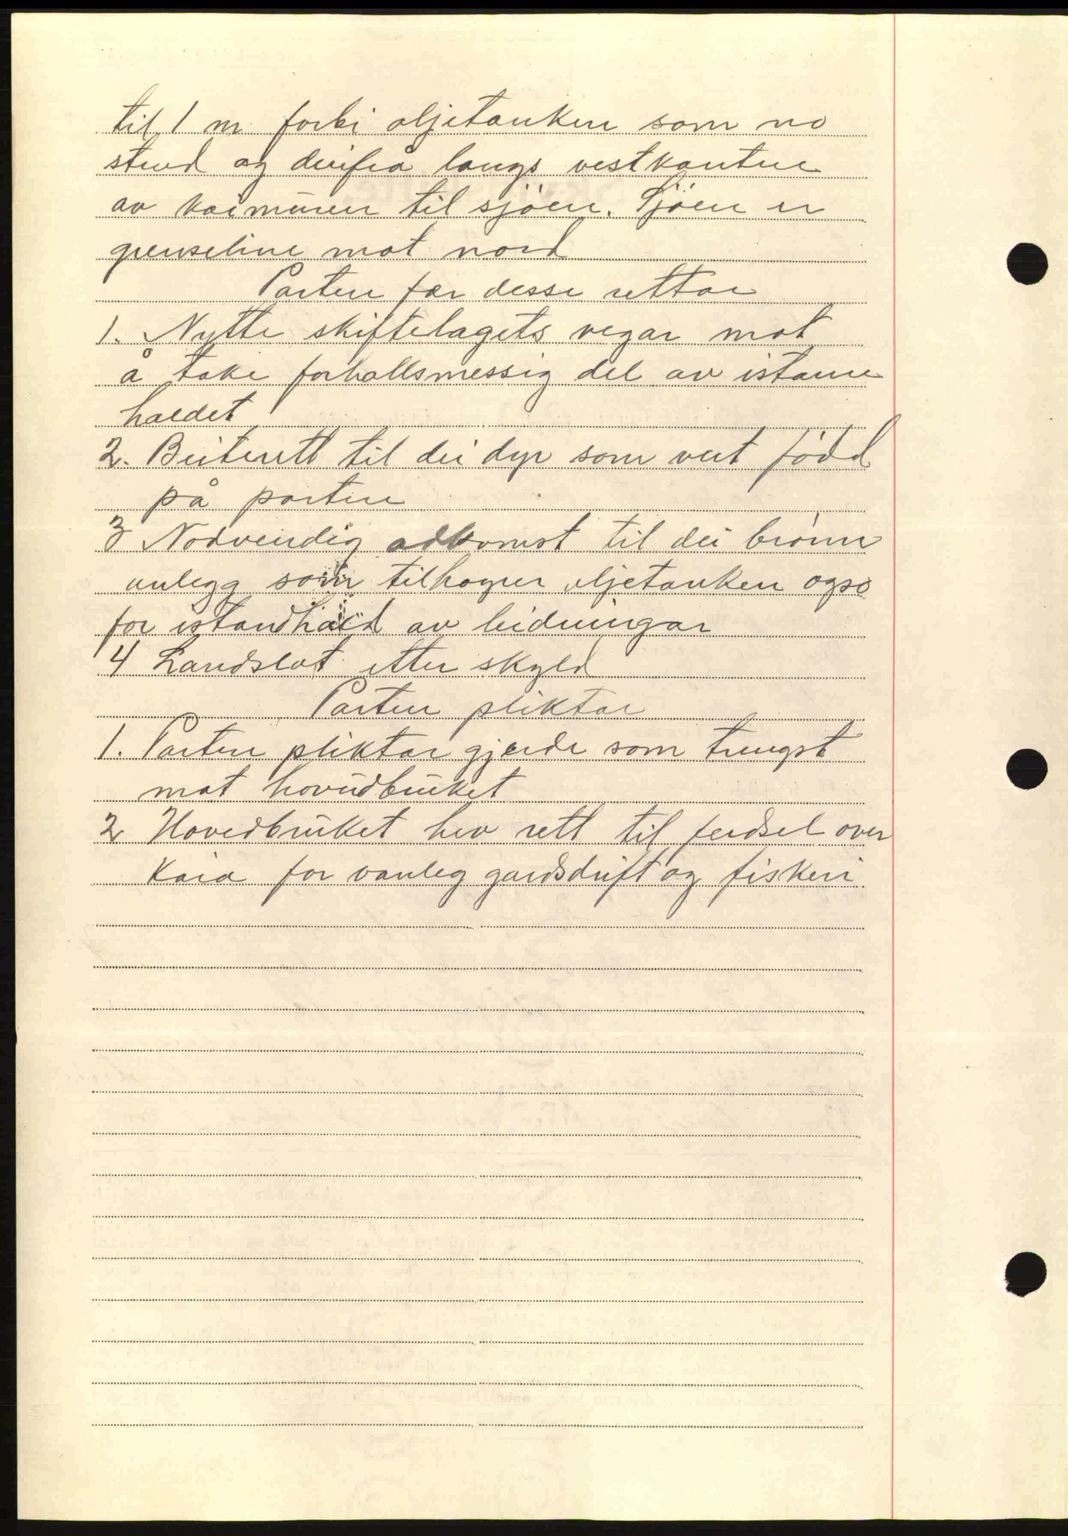 til 1 m forbi oljetanken som no
stend og derifrå langs vestkanten
av kaimuren til sjöen. Sjöen er
grenseline mot nord
Parten fær desse rettar
1. Nytte skiftelagets vegar mot
å take forhollsmessig del av istanne
haldet
2. Beiterett til dei dyr som vert född
på parten
3 Nodvendig adkomst til dei brönn
anlegg som tilhoyrer oljetanken ogso
for istandhald av leidningar
4 Landslot etter skyld
Parten pliktar
1. Parten pliktar gjerde som trengst
mot hovudbruket
2 Hovedbruket hev rett til ferdsel over
Kaia for vanleg gardsdrift og fiskeri.